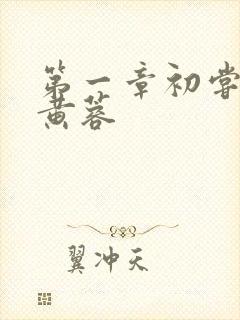 第一章初尝
黄蓉
翼冲天